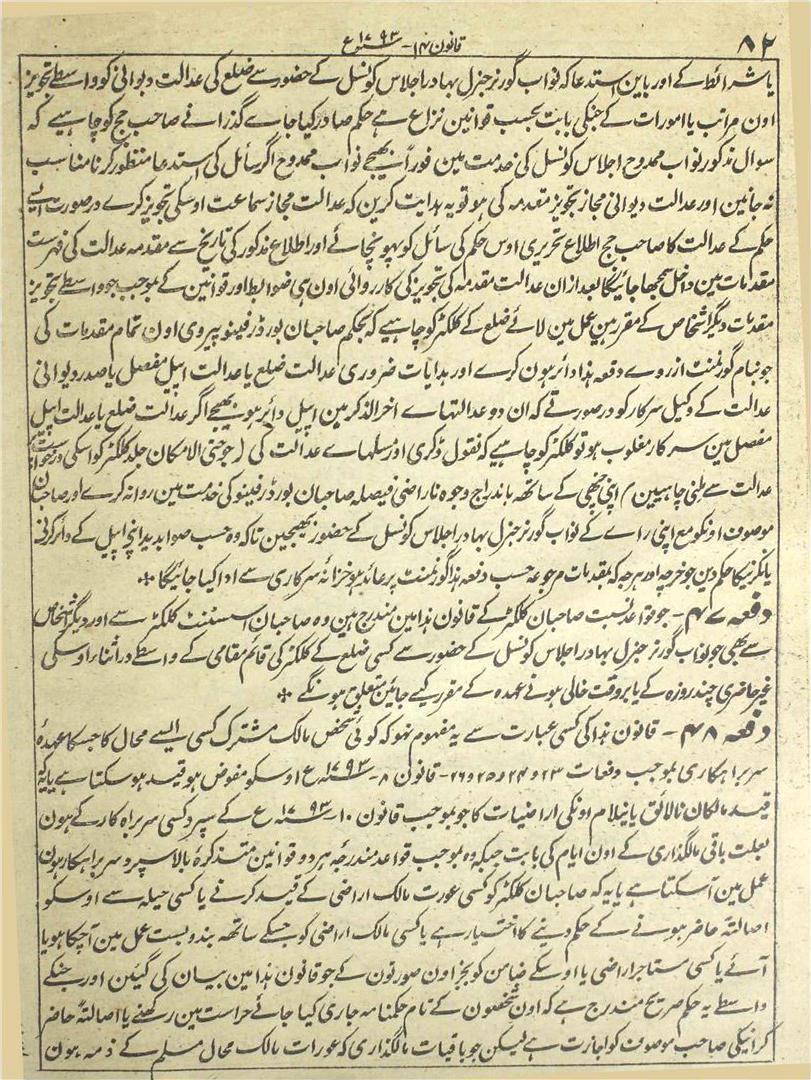 ۸۲ قانون ۱۴ - سنہ ۱۷۹۳ع
یا شرائط کے اور باین استدعا کہ نواب گورنر جنرل بہادر اجلاس کونسل کے حضور سے ضلع کی عدالت دیوانی کو واسطے تجویز
اون مراتب یا امورات کے جنکی بابت بحسب قوانین نزاع ہے حکم صادر کیا جاے گذرانے صاحب جج کو چاہیے کہ
سوال مذکور نواب ممدوح اجلاس کونسل کی خدمت مین فوراً بھیجے نواب ممدوح اگر سائل کی استدعا منظور کرنا مناسب
نہ جانین اور عدالت دیوانی مجاز تجویز مقدمہ کی ہو تو یہ ہدایت کرین کہ عدالت مجاز سماعت اوسکی تجویز کرے درصورت ایسے
حکم کے عدالت کا صاحب جج اطلاع تحریری اوس حکم کی سائل کو پہونچائے اور اطلاع مذکور کی تاریخ سے مقدمہ عدالت کی فہرست
مقدمات مین داخل سمجھا جائیگا بعد ازان عدالت مقدمہ کی تجویز کی کارروائی اون ہی ضوابط اور قوانین کے بموجب جو واسطے تجویز
مقدمات دیگر اشخاص کے مقرر ہین عمل مین لائے ضلع کے کلکٹر کو چاہیے کہ بحکم صاحبان بورڈ رفینو پیروی اون تمام مقدمات کی
جو بنام گورنمنٹ ازروے دفعہ ہذا دائر ہون کرے اور ہدایات ضروری عدالت ضلع یا عدالت اپیل مفصل یا صدر دیوانی
عدالت کے وکیل سرکار کو درصورتے کہ ان دو عدالتہاے آخر الذکر مین اپیل دائر ہو بھیجے اگر عدالت ضلع یا عدالت اپیل
مفصل مین سرکار مغلوب ہو تو کلکٹر کو چاہیے کہ نقول ڈکری اور مسلہاے عدالت کی (جو حتی الامکان جلد کلکٹر کو اسکی درخواست پر
عدالت سے ملنی چاہییں) اپنی چٹھی کے ساتھ باندراج وجوہ ناراضی فیصلہ صاحبان بورڈ رفینو کی خدمت مین روانہ کرے اور صاحبان
موصوف اونکو مع اپنی راے کے نواب گورنر جنرل بہادر اجلاس کونسل کے حضور بھیجین تاکہ وہ حسب صوابدید اپنے اپیل کے دائر کرنے
یا نکرنیکا حکم دین جو خرچہ اور ہرجہ کہ بمقدمات مرجوعہ حسب دفعہ ہذا گورنمنٹ پر عائد ہو خزانہ سرکاری سے ادا کیا جائیگا ٭
دفعہ ۴۷ - جو قواعد نسبت صاحبان کلکٹر کے قانون ہذا مین مندرج ہین وہ صاحبان اسسٹنٹ کلکٹر سے اور دیگر اشخاص
سے بھی جو نواب گورنر جنرل بہادر اجلاس کونسل کے حضور سے کسی ضلع کے کلکٹر کی قائم مقامی کے واسطے در اثناء اوسکی
غیر حاضری چند روزہ کے یا بروقت خالی ہونے عہدہ کے مقرر کیے جائین متعلق ہونگے ٭
دفعہ ۴۸ - قانون ہذا کی کسی عبارت سے یہ مفہوم نہو کہ کوئی شخص مالک مشترک کسی ایسے محال کا جسکا عہدۂ
سربراہکاری بموجب دفعات ۲۳ و ۲۴ و ۲۵ و ۲۶ - قانون ۸ - سنہ ۱۷۹۳ع اوسکو مفوض ہو قید ہو سکتا ہے یا یہ کہ
قید مالکان نالائق یا نیلام اونکی اراضیات کا جو بموجب قانون ۱۰ - سنہ ۱۷۹۳ع کے سپرد کسی سربراہ کار کے ہون
بعلت باقی مالگذاری کے اون ایام کی بابت جبکہ وہ بموجب قواعد مندرجہ ہر دو قوانین متذکرۂ بالا سپرد سربراہکار ہون
عمل مین آسکتا ہے یا یہ کہ صاحبان کلکٹر کو کسی عورت مالک اراضی کے قید کرنے یا کسی حیلہ سے اوسکو
اصالتہ حاضر ہونے کے حکم دینے کا اختیار ہے یا کسی مالک اراضی کو جسکے ساتھ بندوبست عمل مین آچکا ہو یا
آئے یا کسی مستاجر اراضی یا اوسکے ضامن کو بجز اون صورتون کے جو قانون ہذا مین بیان کی گئین اور جنکے
واسطے یہ حکم صریح مندرج ہے کہ اون شخصون کے نام حکمنامہ جاری کیا جائے حراست مین رکھنے یا اصالتہً حاضر
کرانیکی صاحب موصوف کو اجازت ہے لیکن جو باقیات مالگذاری کہ عورات مالک محال مسلم کے ذمہ ہون